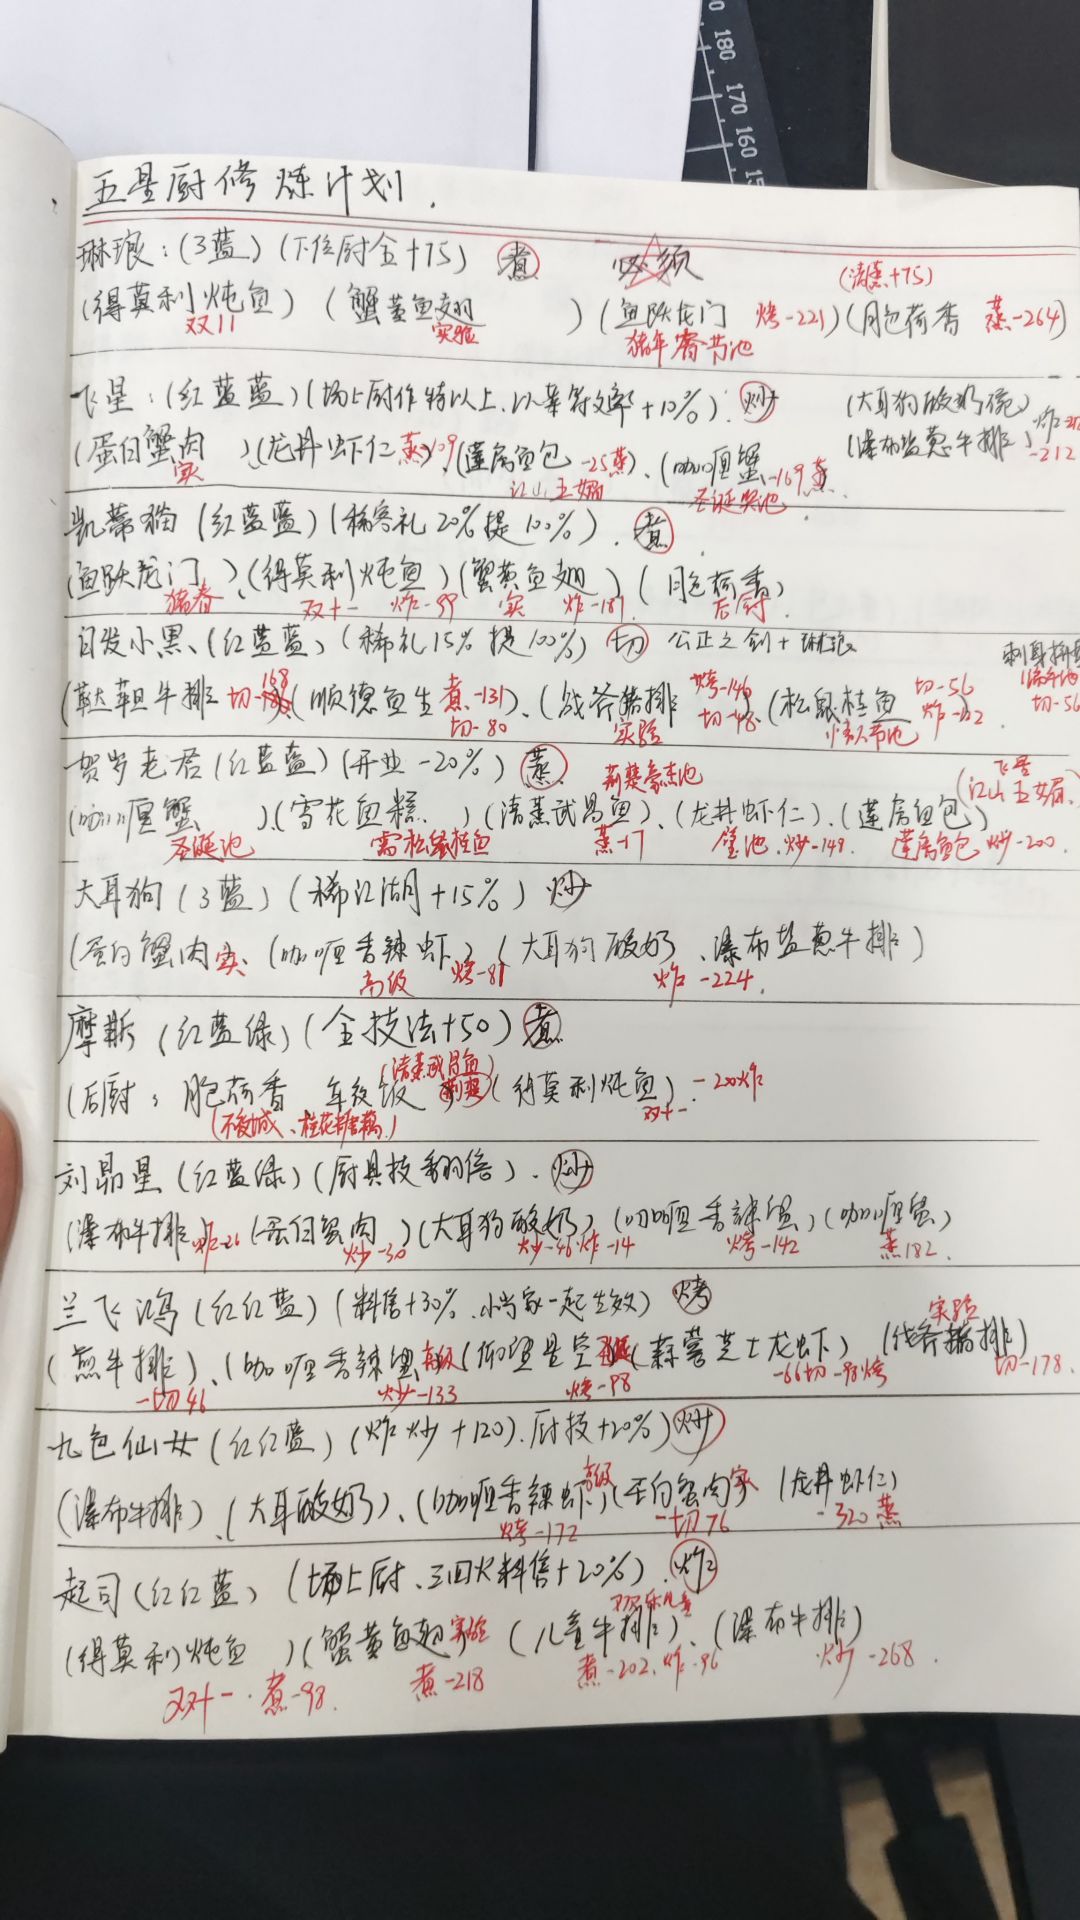 180 170 160 15
五星厨修炼计划.
琳琅：(3蓝) (下位厨全+75) 煮 必须
(清蒸+75)
(得莫利炖鱼) (蟹黄鱼翅 ) (鱼跃龙门 烤-221) (月色荷香 蒸-264)
双11 实验 猪年春节池
飞星：(红蓝蓝) (场上厨作特以上、 +10%). 炒 (大耳狗酸奶碗)
(蛋白蟹肉 )、(龙井虾仁 蒸 109)、(莲房鱼包 -25蒸)、(咖喱蟹 -169蒸 (瀑布盐葱牛排) -212
实 江山玉娟 圣诞奖池
凯蒂猫 (红蓝蓝) (稀客礼20%提100%). 煮
(鱼跃龙门 )、(得莫利炖鱼) (蟹黄鱼翅 ) (月色荷香)
猪春 双十一 炸-99 实 炸-187 后厨
白发小黑、(红蓝蓝) (稀礼15%提100%) 切 公正之剑+琳琅
(鞑靼牛排 切-168) (顺德鱼生 煮-131)、(战斧猪排 烤-146 (松鼠桂鱼 切-56
切-80 实验 切-48 炸-102 切-56
贺岁老君 (红蓝蓝) (开业-20%) 蒸. 荆楚豪杰池
(咖喱蟹 )、(雪花鱼糕 ) (清蒸武昌鱼)、(龙井虾仁)、(莲房鱼包)
圣诞池 需松鼠桂鱼 蒸-17 炒-149. 莲房鱼包 炒-200.
大耳狗 (3蓝) (稀江湖+15%) 炒
(蛋白蟹肉 实、(咖喱香辣虾)、(大耳狗酸奶 、瀑布盐葱牛排)
高级 烤-81 炸 -224.
摩斯 (红蓝绿) (全技法+50) 煮
(清蒸武昌鱼)
(后厨：月色荷香 年夜饭 (得莫利炖鱼). -200炸
(不夜城、桂花糖藕) 双十一
刘昴星 (红蓝绿) (厨具技翻倍). 炒
(瀑布牛排) 炸-26 (蛋白蟹肉 ) (大耳狗酸奶) (咖喱香辣蟹) (咖喱蟹)
炒-30 炒-46 炸-14 烤-142 蒸182.
兰飞鸿 (红红蓝) (料售+30%、小当家一起生效) 烤
(煎牛排)、(咖喱香辣蟹 高级 (仰望星空 (蒜蓉芝士龙虾) (战斧猪排) 实验
-切46 炒-133 烤-98 -66切-98烤 切-178.
九色仙女 (红红蓝) (炸炒+120).厨技+20%) 炒
(瀑布牛排)、(大耳酸奶)、(咖喱香辣虾 高级) (蛋白蟹肉 实 (龙井虾仁)
烤-172 -切76 -320蒸
起司 (红红蓝) (场上厨、三回火料售+20%). 炸
(得莫利炖鱼 ) (蟹黄鱼翅 实验 (儿童牛排)、(瀑布牛排)
双十一. 煮-98. 煮-218 煮-202.炸-96 炒-268.